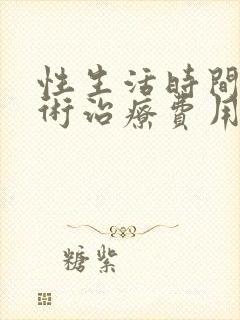 性生活時間
術治療費用
糖紫